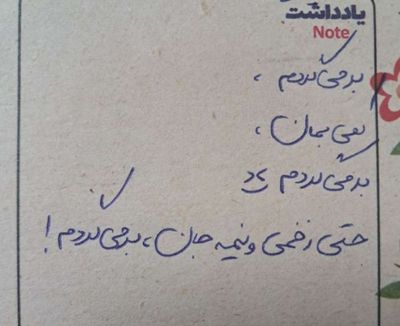 یادداشت
Note
برمی‌گردم ،
کمی بمان ،
برمی‌گردم
حتی زخمی و نیمه جان ، برمی‌گردم !